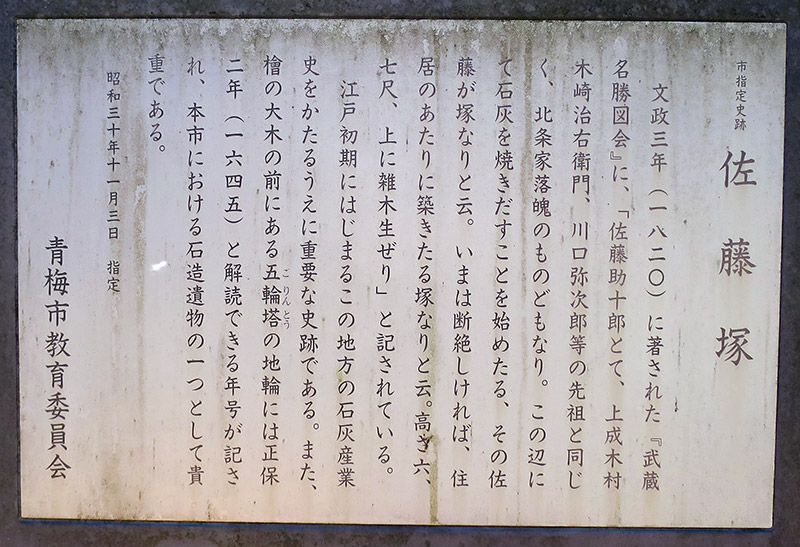 市指定史跡
佐藤塚
文政三年（一八二〇）に著された『武蔵
名勝図会』に、「佐藤助十郎とて、上成木村
木崎治右衛門、川口弥次郎等の先祖と同じ
く、北条家落魄のものどもなり。この辺に
て石灰を焼きだすことを始めたる、その佐
藤が塚なりと云。いまは断絶しければ、住
居のあたりに築きたる塚なりと云。高さ六、
七尺、上に雑木生ぜり」と記されている。
江戸初期にはじまるこの地方の石灰産業
史をかたるうえに重要な史跡である。また、
檜の大木の前にある五輪塔の地輪には正保
ごりんとう
二年（一六四五）と解読できる年号が記さ
れ、本市における石造遺物の一つとして貴
重である。
昭和三十年十一月三日 指定
青梅市教育委員会